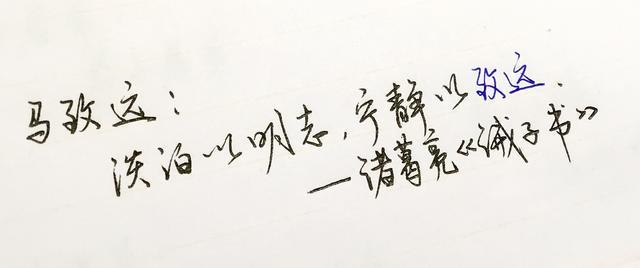 马致远：
淡泊以明志，宁静以致远.
—诸葛亮《诫子书》